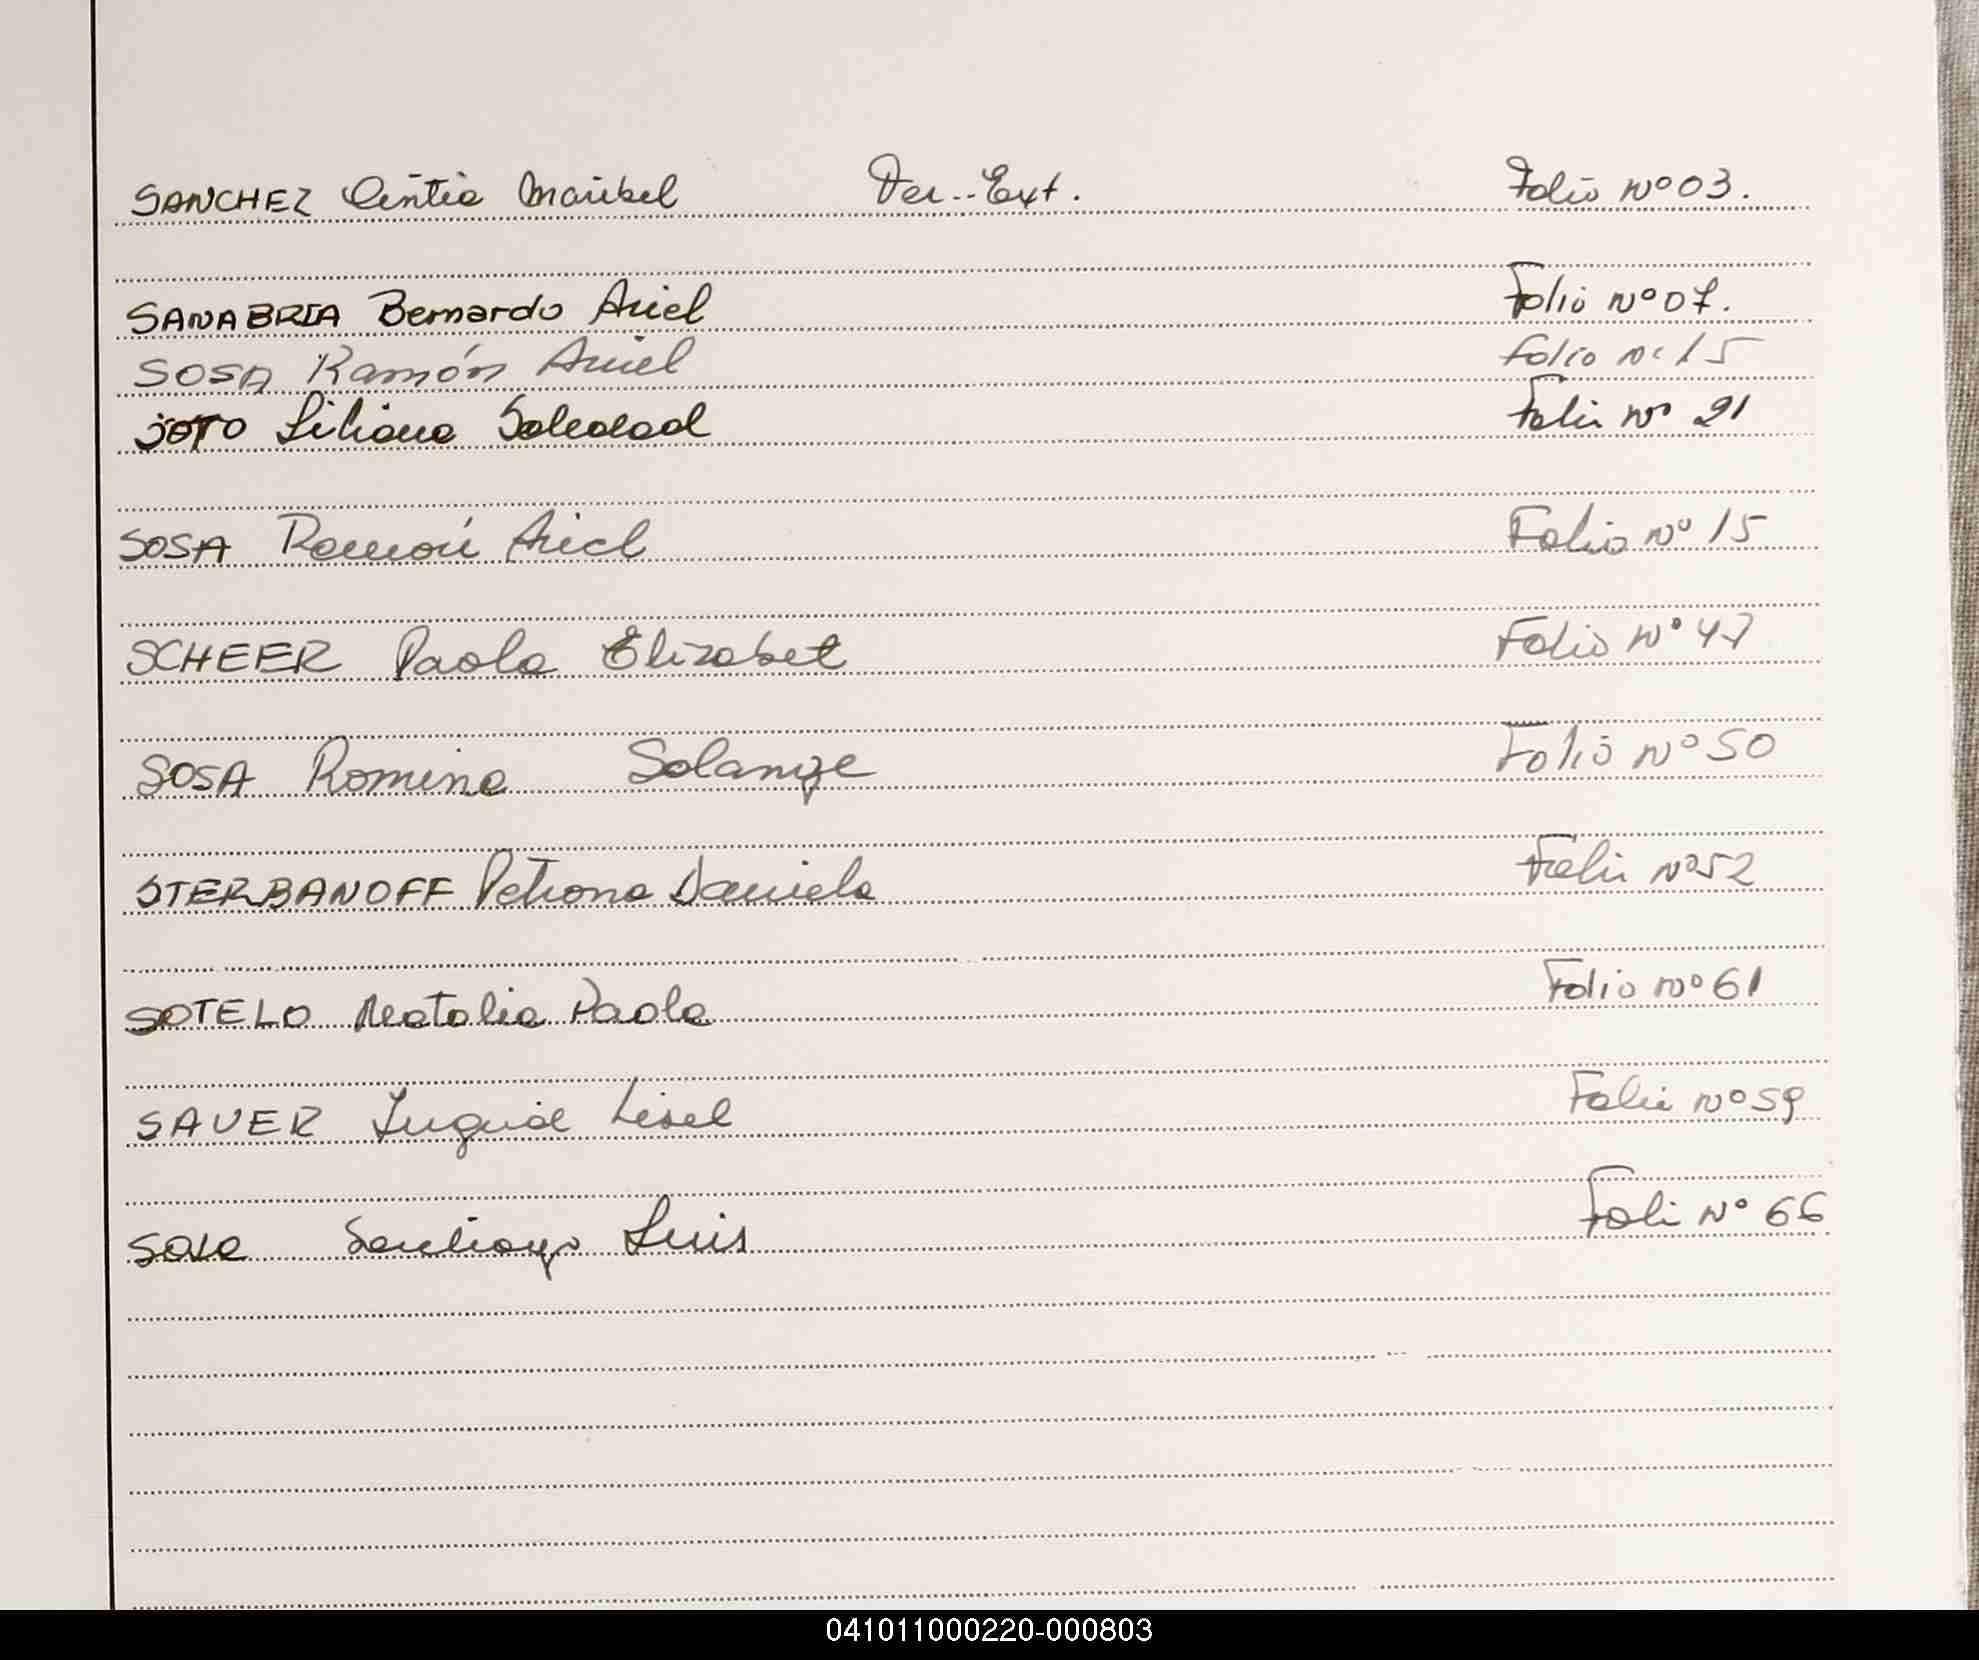 SANCHEZ Cintia Maribel Ver..Ext. Folio Nº 03.
SANABRIA Bernardo Ariel Folio Nº 07.
SOSA Ramón Ariel folio Nº 15
SOTO Liliana Soledad Folio Nº 21
SOSA Ramón Ariel Folio Nº 15
SCHEER Paola Elizabet Folio Nº 47
SOSA Romina Solange Folio Nº 50
STERBANOFF Petrona Daniela Folio Nº 52
SOTELO Natalia Paola Folio Nº 61
SAUER Lisel Folio Nº 59
Santiago Luis Folio Nº 66
041011000220-000803